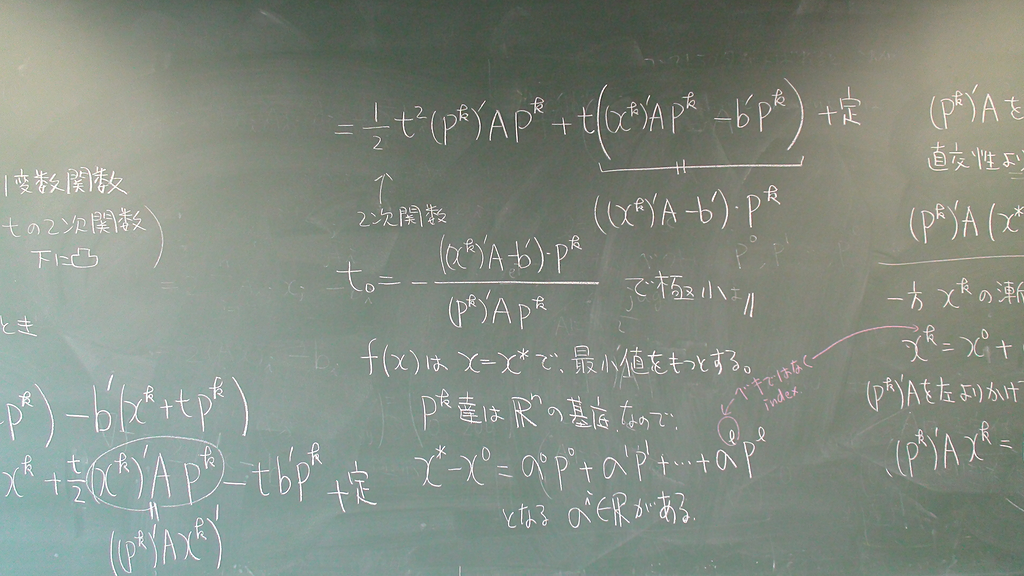 1変数関数
tの2次関数)
下に凸
とき
p^k) - b'(x^k + t p^k)
x^k + t/2 (x^k)'A p^k - t b'p^k + 定
((p^k)'A x^k)'
= 1/2 t^2 (p^k)'A p^k + t((x^k)'A p^k - b'p^k) + 定
↑ ((x^k)'A - b')・p^k
2次関数
t_0 = - ((x^k)'A - b')・p^k / (p^k)'A p^k で極小
f(x)は x = x^* で、最小値をもつとする。
p^k達は R^n の基底なので
x^* - x^0 = a^0 p^0 + a^1 p^1 + … + a^l p^l
となる a^i ∈ R がある.
べキではなく
index
(p^k)'A を
直交性より
(p^k)'A(x^*
一方 x^k の漸
x^k = x^0 +
(p^k)'A を左よりかけ
(p^k)'A x^k =